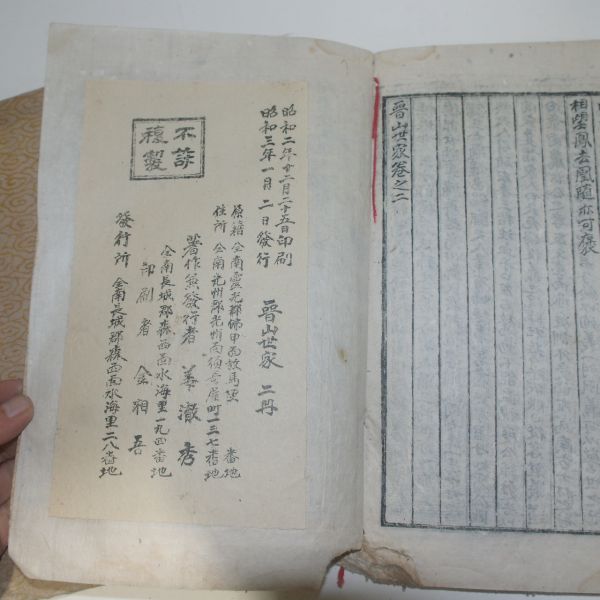 相雲鳳去凰隨亦可襃
晋山世家卷之二
昭和二年十二月二十五日印刷
昭和三年一月二日發行
晋山世家 二冊
原籍 全南靈光郡佛甲面放馬里 番地
住所 全南光州郡光州面須奇屋町一三七番地
著作兼發行者 姜澈秀
全南長城郡森西面水海里一九四番地
印刷者 金相吾
發行所 全南長城郡森西面水海里二八番地
不許
複製